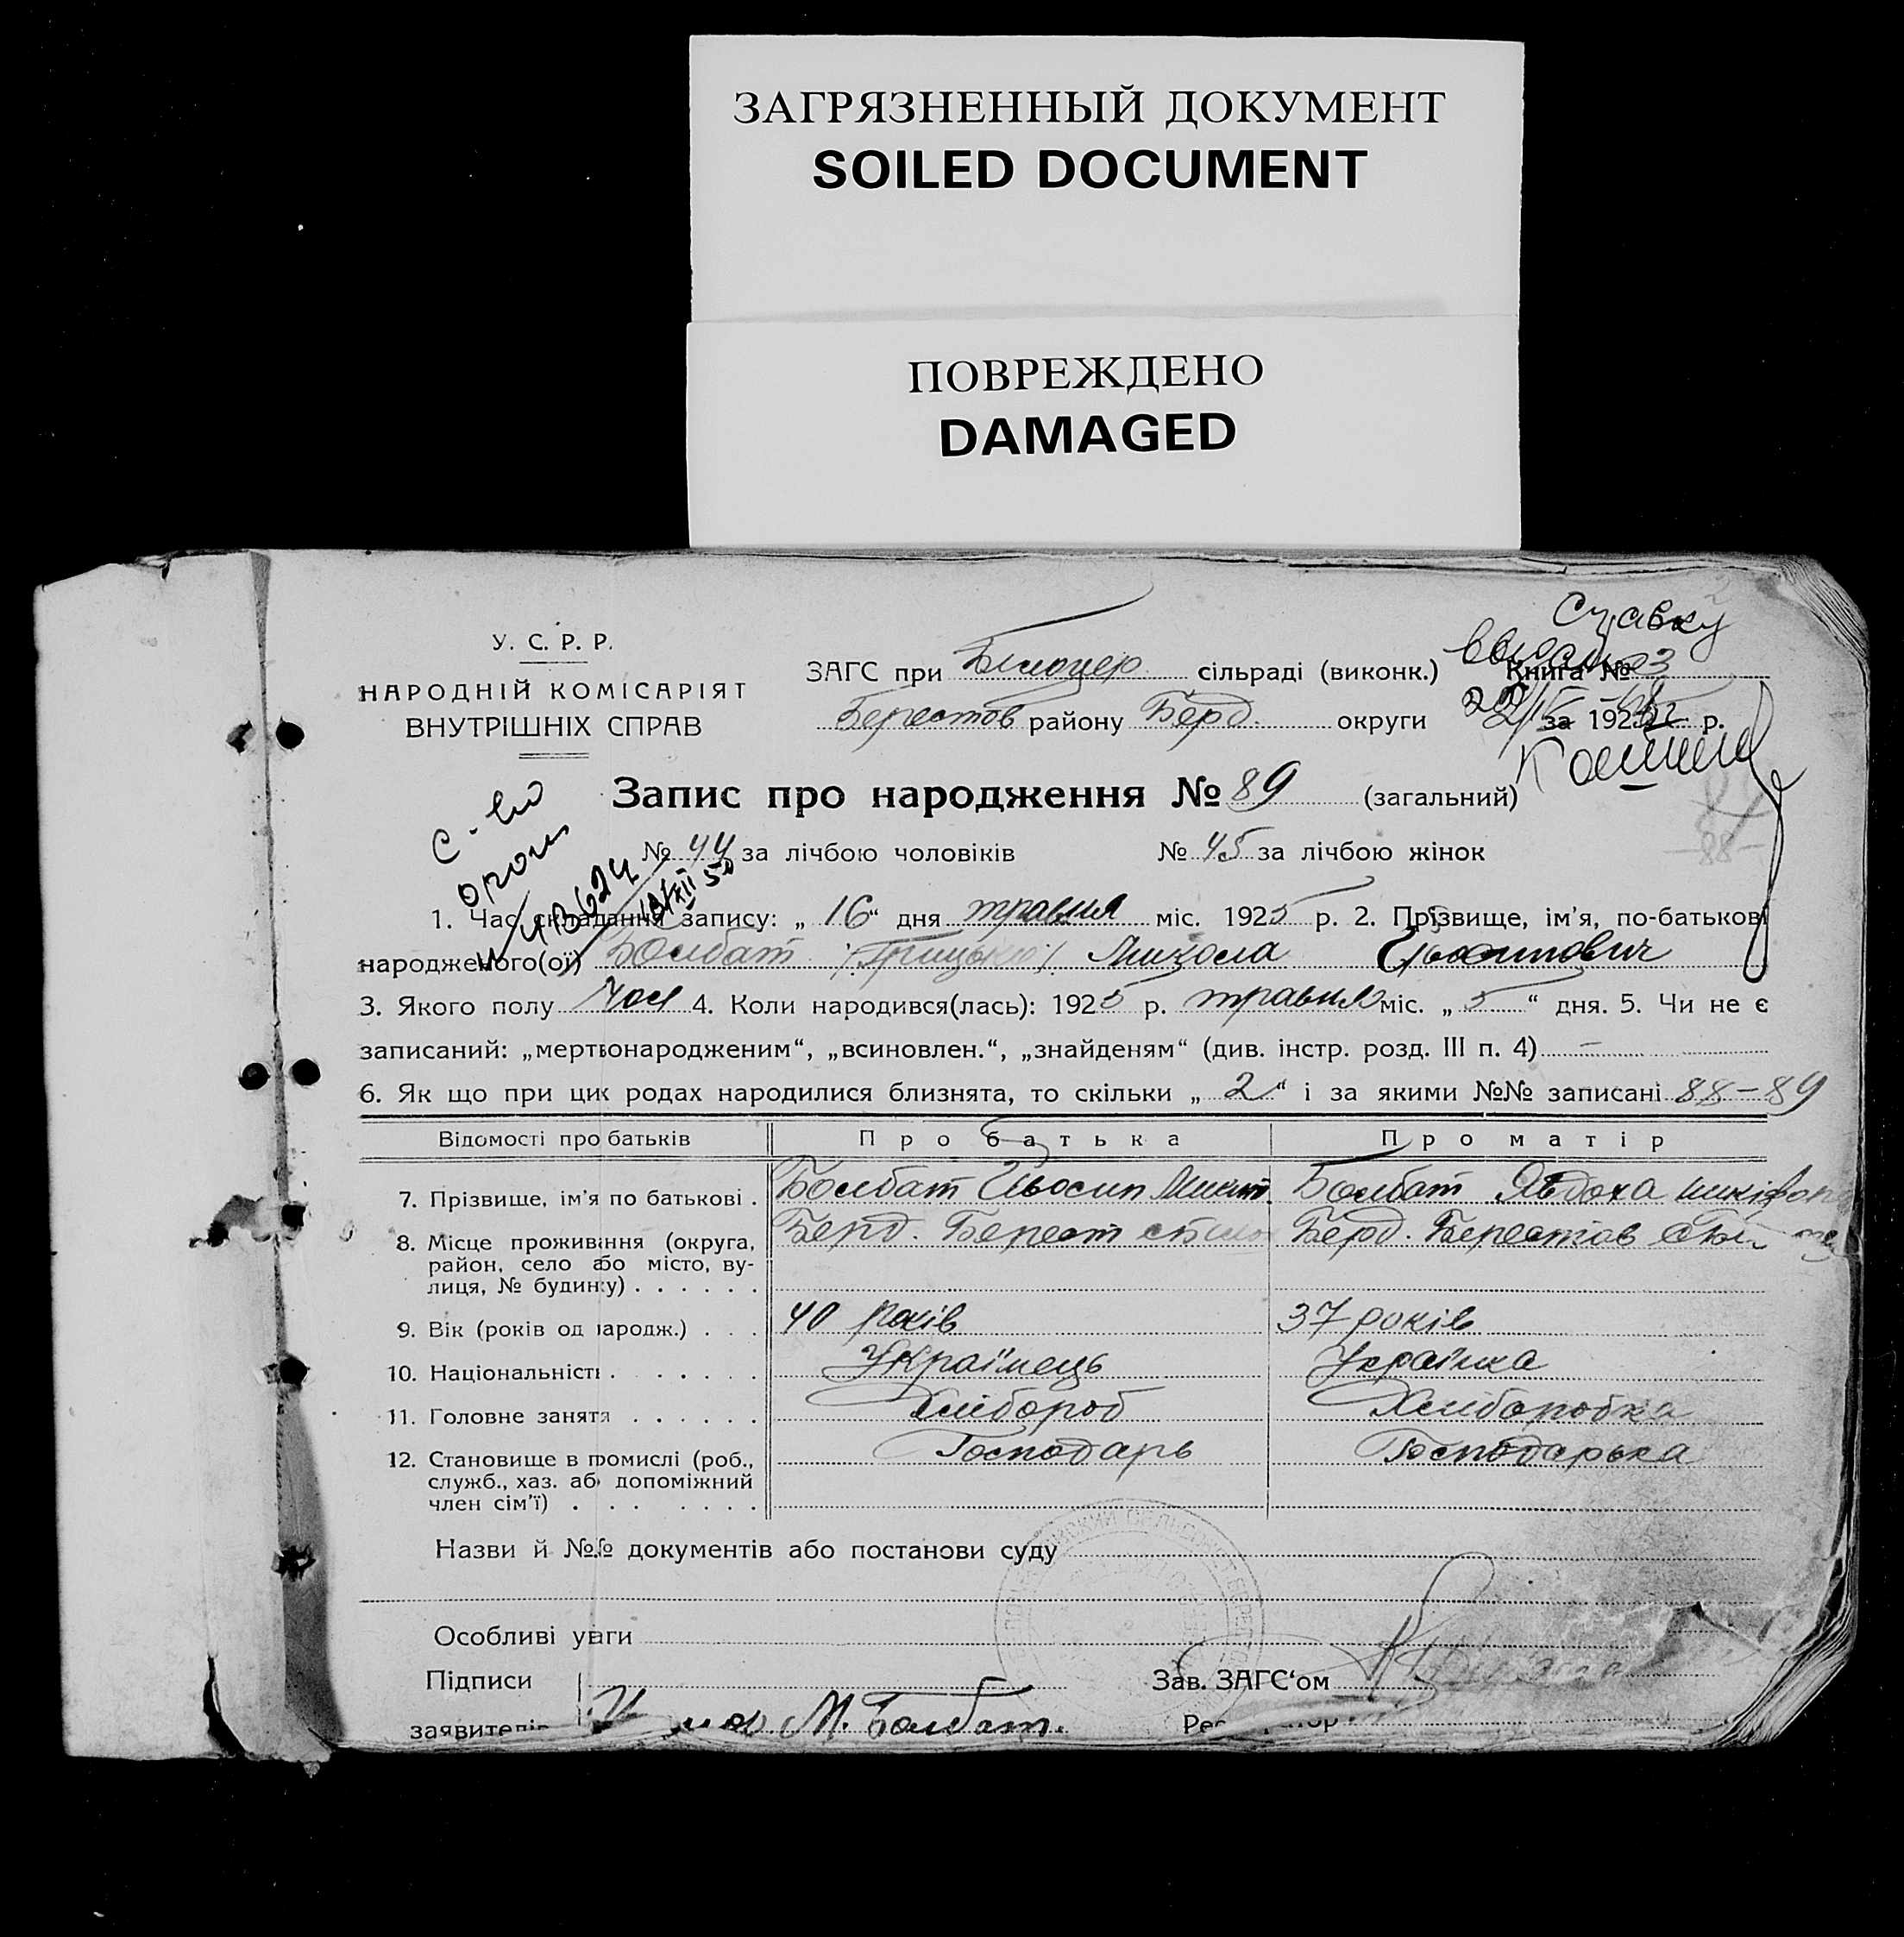 ЗАГРЯЗНЕННЫЙ ДОКУМЕНТ
SOILED DOCUMENT
ПОВРЕЖДЕНО
DAMAGED
У. С. Р. Р.
НАРОДНІЙ КОМІСАРІЯТ
ВНУТРІШНІХ СПРАВ
ЗАГС при Білоцер. сільраді (виконк.) Книга №
Берестов району Берд. округи за 192 р.
Запис про народження № 89 (загальний)
№ 44 за лічбою чоловіків № 45 за лічбою жінок
1. Час складання запису: „ 16 “ дня травня міс. 1925 р. 2. Прізвище, ім'я, по-батькові
народженого(ої) Болбат /Грицько/ Микола
3. Якого полу Чол 4. Коли народився(лась): 1925 р. травня міс. „ 5 “ дня. 5. Чи не є
записаний: „мертвонародженим“, „всиновлен.“, „знайденям“ (див. інстр. розд. III п. 4) –
6. Як що при цих родах народилися близнята, то скільки „ 2 “ і за якими №№ записані 88-89
Відомості про батьків Про батька Про матір
7. Прізвище, ім'я по батькові . Болбат Йвосип Микит. Болбат Явдоха
8. Місце проживання (округа, Берд. Берест Берд. Берестов
район, село або місто, ву-
лиця, № будинку) . . . . . .
9. Вік (років од народж.) . . . 40 років 37 років
10. Національність . . . . . . Українець Українка
11. Головне заняття . . . . . . Хлібороб Хліборобка
12. Становище в промислі (роб., Господарь Господарька
служб., хаз. або допоміжний
член сім'ї) . . . . . . .
Назви й №№ документів або постанови суду
Особливі уваги
Підписи Зав. ЗАГС'ом
заявителів М. Болбат.